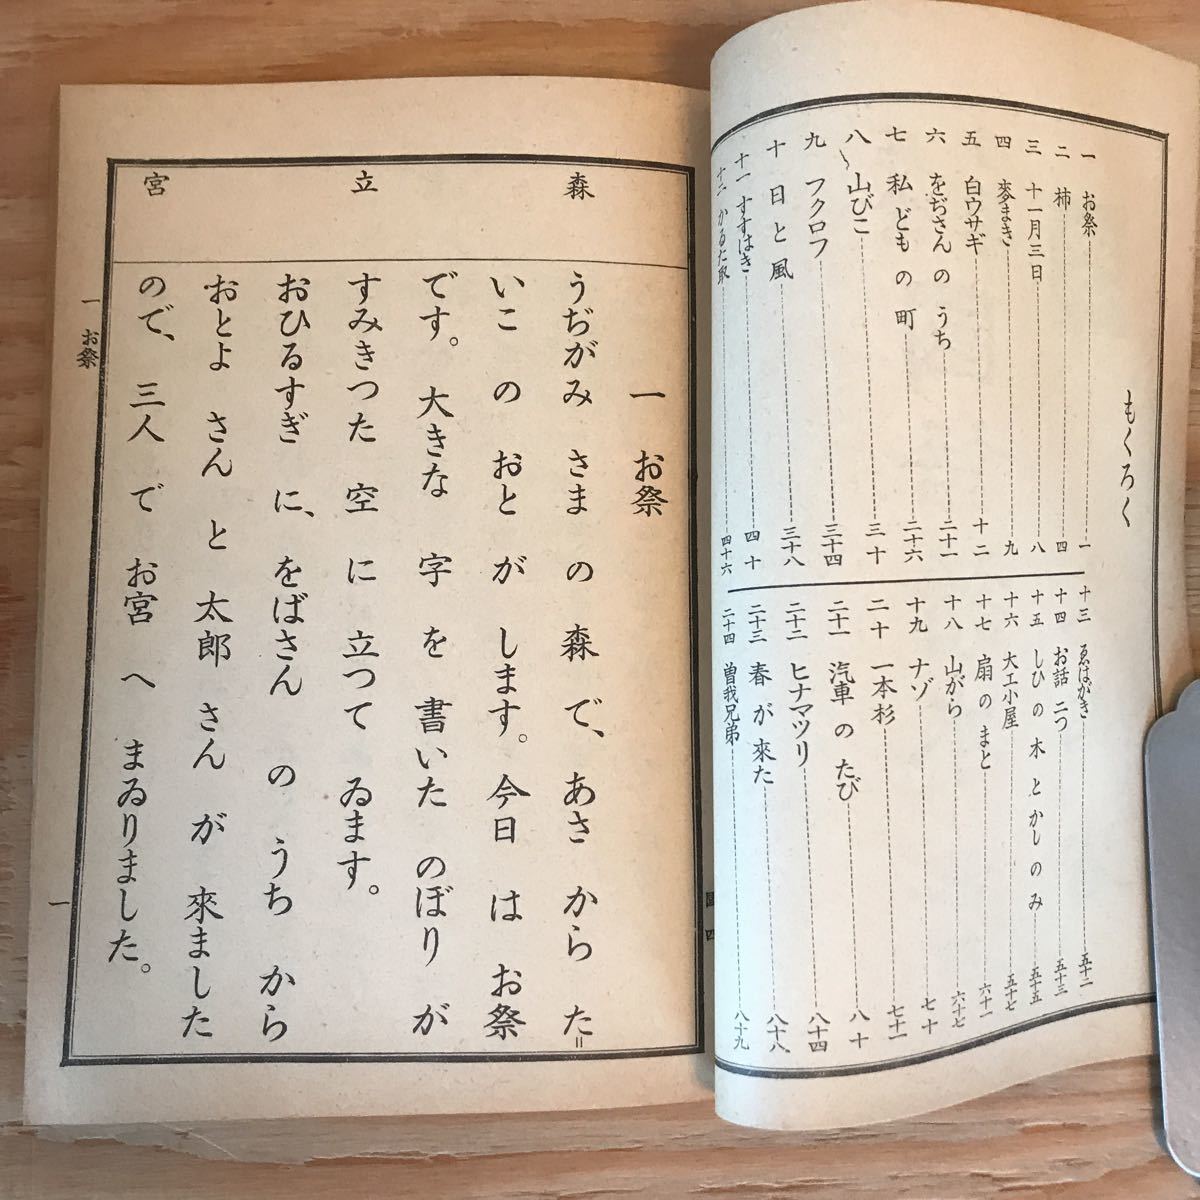 もくろく
一 お祭 一
二 柿 四
三 十一月三日 八
四 麥まき 九
五 白ウサギ 十二
六 をぢさん の うち 二十一
七 私 ども の 町 二十六
八 山びこ 三十
九 フクロフ 三十四
十 日 と 風 三十八
十一 すすはき 四十
十二 かるた取 四十六
十三 ゑはがき 五十二
十四 お話 二つ 五十三
十五 しひ の 木 と かし の み 五十五
十六 大工小屋 五十七
十七 扇 の まと 六十一
十八 山がら 六十七
十九 ナゾ 七十
二十 一本杉 七十一
二十一 汽車 の たび 八十
二十二 ヒナマツリ 八十四
二十三 春 が 來た 八十八
二十四 曽我兄弟 八十九
國 四
一 お祭
森
うぢがみ さま の 森 で、あさ から た=
いこ の おと が します。今日 は お祭
です。大きな 字 を 書いた のぼり が
立
すみきつた 空 に 立つて ゐます。
おひるすぎ に、をばさん の うち から
おとよ さん と 太郎 さん が 來ました
宮
ので、三人 で お宮 へ まゐりました。
一 お祭
一